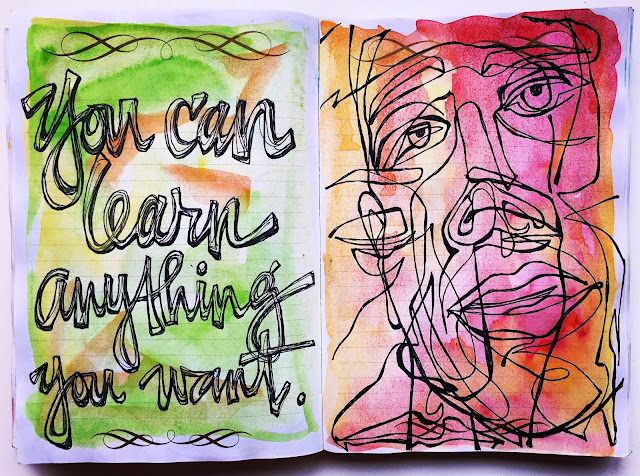 You can
learn
anything
you want.